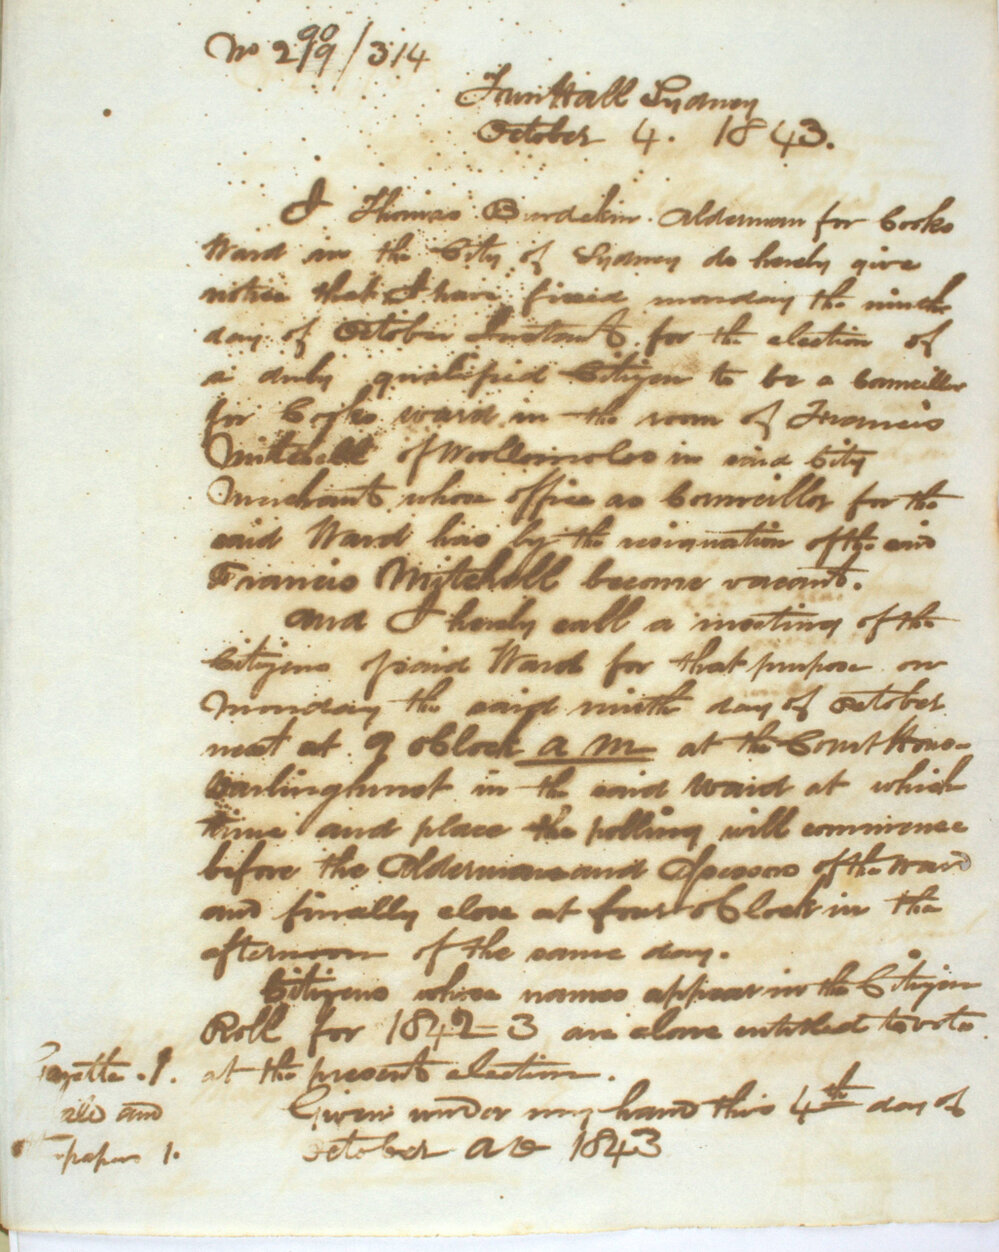 No 299/314
Town Hall Sydney
October 4. 1843.
I Thomas Burdekin Alderman for Cooks
Ward in the City of Sydney do hereby give
notice that I have fixed monday the ninth
day of October Instant for the election of
a duly qualified Citizen to be a Councillor
for Cooks ward in the room of Francis
Mitchell of Woolloomooloo in said City
Merchant whose office as Councillor for the
said Ward has by the resignation of the said
Francis Mitchell become vacant.
and I hereby call a meeting of the
Citizens of said Ward for that purpose on
Monday the said ninth day of October
next at 9 oClock a m at the Court House
Darlinghurst in the said Ward at which
time and place the polling will commence
before the Alderman and Assessors of the ward
and finally close at four oClock in the
afternoon of the same day.
Citizens whose names appear in the Citizen
Roll for 1842-3 are alone entitled to vote
at the present election.
Given under my hand this 4th day of
October AD 1843
Gazette . 1.
and
papers 1.